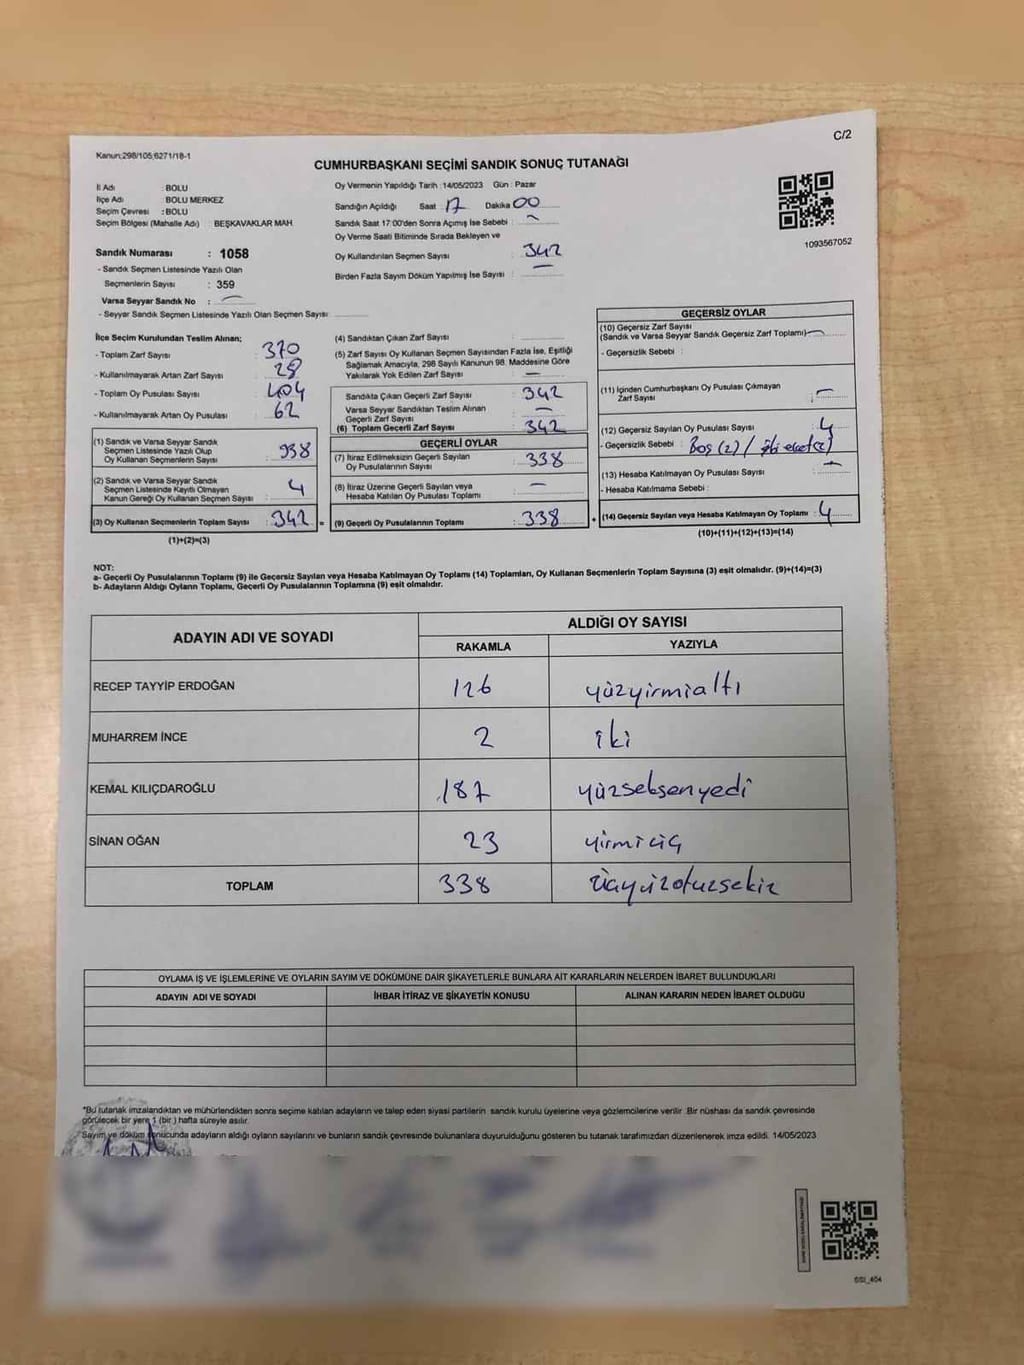 C/2
Kanun:298/105;6271/18-1
CUMHURBAŞKANI SEÇİMİ SANDIK SONUÇ TUTANAĞI
İl Adı : BOLU
İlçe Adı : BOLU MERKEZ
Seçim Çevresi : BOLU
Seçim Bölgesi (Mahalle Adı) BEŞKAVAKLAR MAH.
Sandık Numarası : 1058
- Sandık Seçmen Listesinde Yazılı Olan
Seçmenlerin Sayısı : 359
Varsa Seyyar Sandık No :
- Seyyar Sandık Seçmen Listesinde Yazılı Olan Seçmen Sayısı:
Oy Vermenin Yapıldığı Tarih :14/05/2023 Gün : Pazar
Sandığın Açıldığı Saat 17 Dakika 00
Sandık Saat 17:00'den Sonra Açılmış İse Sebebi :
Oy Verme Saati Bitiminde Sırada Bekleyen ve
Oy Kullandırılan Seçmen Sayısı : 342
Birden Fazla Sayım Döküm Yapılmış İse Sayısı :
1093567052
İlçe Seçim Kurulundan Teslim Alınan;
- Toplam Zarf Sayısı : 370
- Kullanılmayarak Artan Zarf Sayısı : 28
- Toplam Oy Pusulası Sayısı : 404
- Kullanılmayarak Artan Oy Pusulası : 62
(1) Sandık ve Varsa Seyyar Sandık
Seçmen Listesinde Yazılı Olup
Oy Kullanan Seçmenlerin Sayısı : 938
(2) Sandık ve Varsa Seyyar Sandık
Seçmen Listesinde Kayıtlı Olmayan
Kanun Gereği Oy Kullanan Seçmen Sayısı : 4
(3) Oy Kullanan Seçmenlerin Toplam Sayısı : 342 =
(1)+(2)=(3)
(4) Sandıktan Çıkan Zarf Sayısı :
(5) Zarf Sayısı Oy Kullanan Seçmen Sayısından Fazla İse, Eşitliği
Sağlamak Amacıyla, 298 Sayılı Kanunun 98. Maddesine Göre
Yakılarak Yok Edilen Zarf Sayısı : —
Sandıkta Çıkan Geçerli Zarf Sayısı : 342
Varsa Seyyar Sandıktan Teslim Alınan
Geçerli Zarf Sayısı : —
(6) Toplam Geçerli Zarf Sayısı : 342
GEÇERLİ OYLAR
(7) İtiraz Edilmeksizin Geçerli Sayılan
Oy Pusulalarının Sayısı : 338
(8) İtiraz Üzerine Geçerli Sayılan veya
Hesaba Katılan Oy Pusulası Toplamı : —
(9) Geçerli Oy Pusulalarının Toplamı : 338 +
GEÇERSİZ OYLAR
(10) Geçersiz Zarf Sayısı
(Sandık ve Varsa Seyyar Sandık Geçersiz Zarf Toplamı) :
- Geçersizlik Sebebi :
(11) İçinden Cumhurbaşkanı Oy Pusulası Çıkmayan
Zarf Sayısı :
(12) Geçersiz Sayılan Oy Pusulası Sayısı : 4
- Geçersizlik Sebebi : Boş (2) /
(13) Hesaba Katılmayan Oy Pusulası Sayısı : —
- Hesaba Katılmama Sebebi :
(14) Geçersiz Sayılan veya Hesaba Katılmayan Oy Toplamı : 4
(10)+(11)+(12)+(13)=(14)
NOT:
a- Geçerli Oy Pusulalarının Toplamı (9) ile Geçersiz Sayılan veya Hesaba Katılmayan Oy Toplamı (14) Toplamları, Oy Kullanan Seçmenlerin Toplam Sayısına (3) eşit olmalıdır. (9)+(14)=(3)
b- Adayların Aldığı Oyların Toplamı, Geçerli Oy Pusulalarının Toplamına (9) eşit olmalıdır.
ADAYIN ADI VE SOYADI
ALDIĞI OY SAYISI
RAKAMLA YAZIYLA
RECEP TAYYİP ERDOĞAN 126 yüzyirmialtı
MUHARREM İNCE 2 iki
KEMAL KILIÇDAROĞLU 187 yüzseksenyedi
SİNAN OĞAN 23 yirmiüç
TOPLAM 338 üçyüzotuzsekiz
OYLAMA İŞ VE İŞLEMLERİNE VE OYLARIN SAYIM VE DÖKÜMÜNE DAİR ŞİKAYETLERLE BUNLARA AİT KARARLARIN NELERDEN İBARET BULUNDUKLARI
ADAYIN ADI VE SOYADI İHBAR İTİRAZ VE ŞİKAYETİN KONUSU ALINAN KARARIN NEDEN İBARET OLDUĞU
*Bu tutanak imzalandıktan ve mühürlendikten sonra seçime katılan adayların ve talep eden siyasi partilerin sandık kurulu üyelerine veya gözlemcilerine verilir. Bir nüshası da sandık çevresinde
görülecek bir yere 1 (bir ) hafta süreyle asılır.
Sayım ve döküm sonucunda adayların aldığı oyların sayılarını ve bunların sandık çevresinde bulunanlara duyurulduğunu gösteren bu tutanak tarafımızdan düzenlenerek imza edildi. 14/05/2023
SSI_404